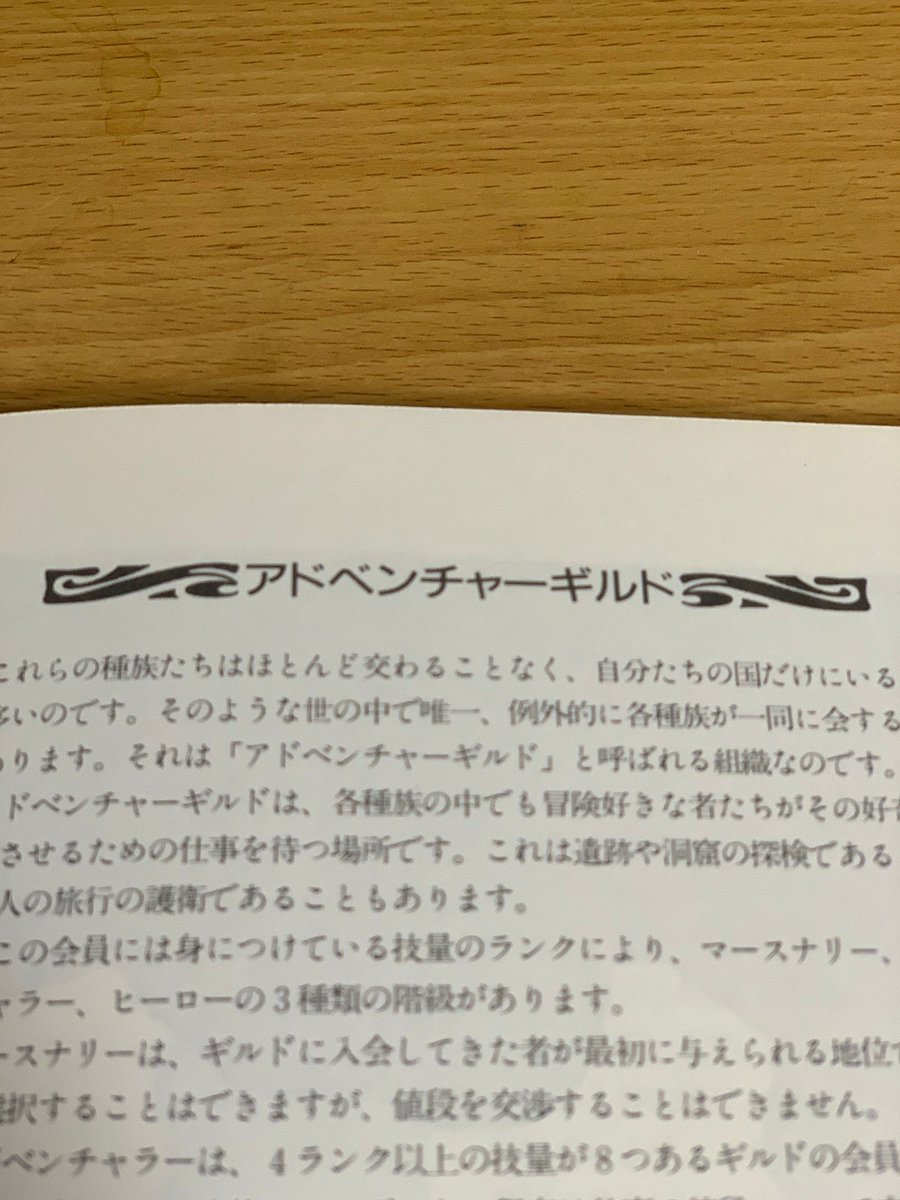 アドベンチャーギルド
これらの種族たちはほとんど交わることなく、自分たちの国だけにいる
多いのです。そのような世の中で唯一、例外的に各種族が一同に会する
ります。それは「アドベンチャーギルド」と呼ばれる組織なのです。
ドベンチャーギルドは、各種族の中でも冒険好きな者たちがその好
させるための仕事を待つ場所です。これは遺跡や洞窟の探検である
人の旅行の護衛であることもあります。
この会員には身につけている技量のランクにより、マースナリー、
ャラー、ヒーローの3種類の階級があります。
ースナリーは、ギルドに入会してきた者が最初に与えられる地位で
択することはできますが、値段を交渉することはできません。
ベンチャラーは、4ランク以上の技量が8つあるギルドの会員